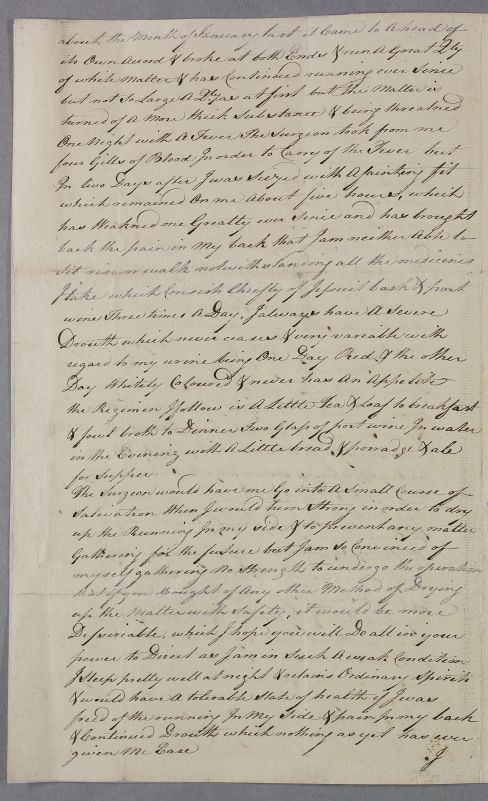 about the Month of January last it Came to A head of
its Own Accord & broke at both Ends & run A Great Qty
of white Matter & has Continued running ever Since
but not So Large A Qty as at first but the Matter is
turned of A More thick Substance & being threatned
One Night with A Fever The Surgeon took from me
four Gills of Blood In order to Carry of the Fever but
In two Days after I was Seized with A fainting fit
which remained On me About five hours, which
has Weakned me Greatly ever Since and has brought
back the pain in My back that I am neither Able to
Sit rise or walk notwithstanding all the medicines
I take which Consists Chiefly of Jesuit bark & port
wine Three times A Day, I always have A Severe
Drouth which never ceases & very variable with
regard to my urine being One Day Red & the other
Day Whitely Coloured & never has An Appetite
the Regimen I follow is A Little Tea & Loaf to breakfast
& fowl broth to Dinner Two Glass of port wine In water
in the Evening with A Little bread & porradge & ale
for Supper
The Surgeon would have me Go into A Small Course of
Salivation When I would turn Strong in order to dry
up the Running In my side & to prevent any matter
Gathering for the future but I am So Convinced of
myself gathering No Strength to undergo the operation
that if you thought of Any other Method of Drying
up the Matter with Safety, it would be more
Desireable, which I hope you will Do all in your
power to Direct as I am in Such A weak Condition
I Sleep pretty well at night & retains Ordinary Spirits
& would have A tolerable State of health if I was
freed of the running In My Side & pain In my back
& Continued Drouth which nothing as yet has ever
given Me Ease
I